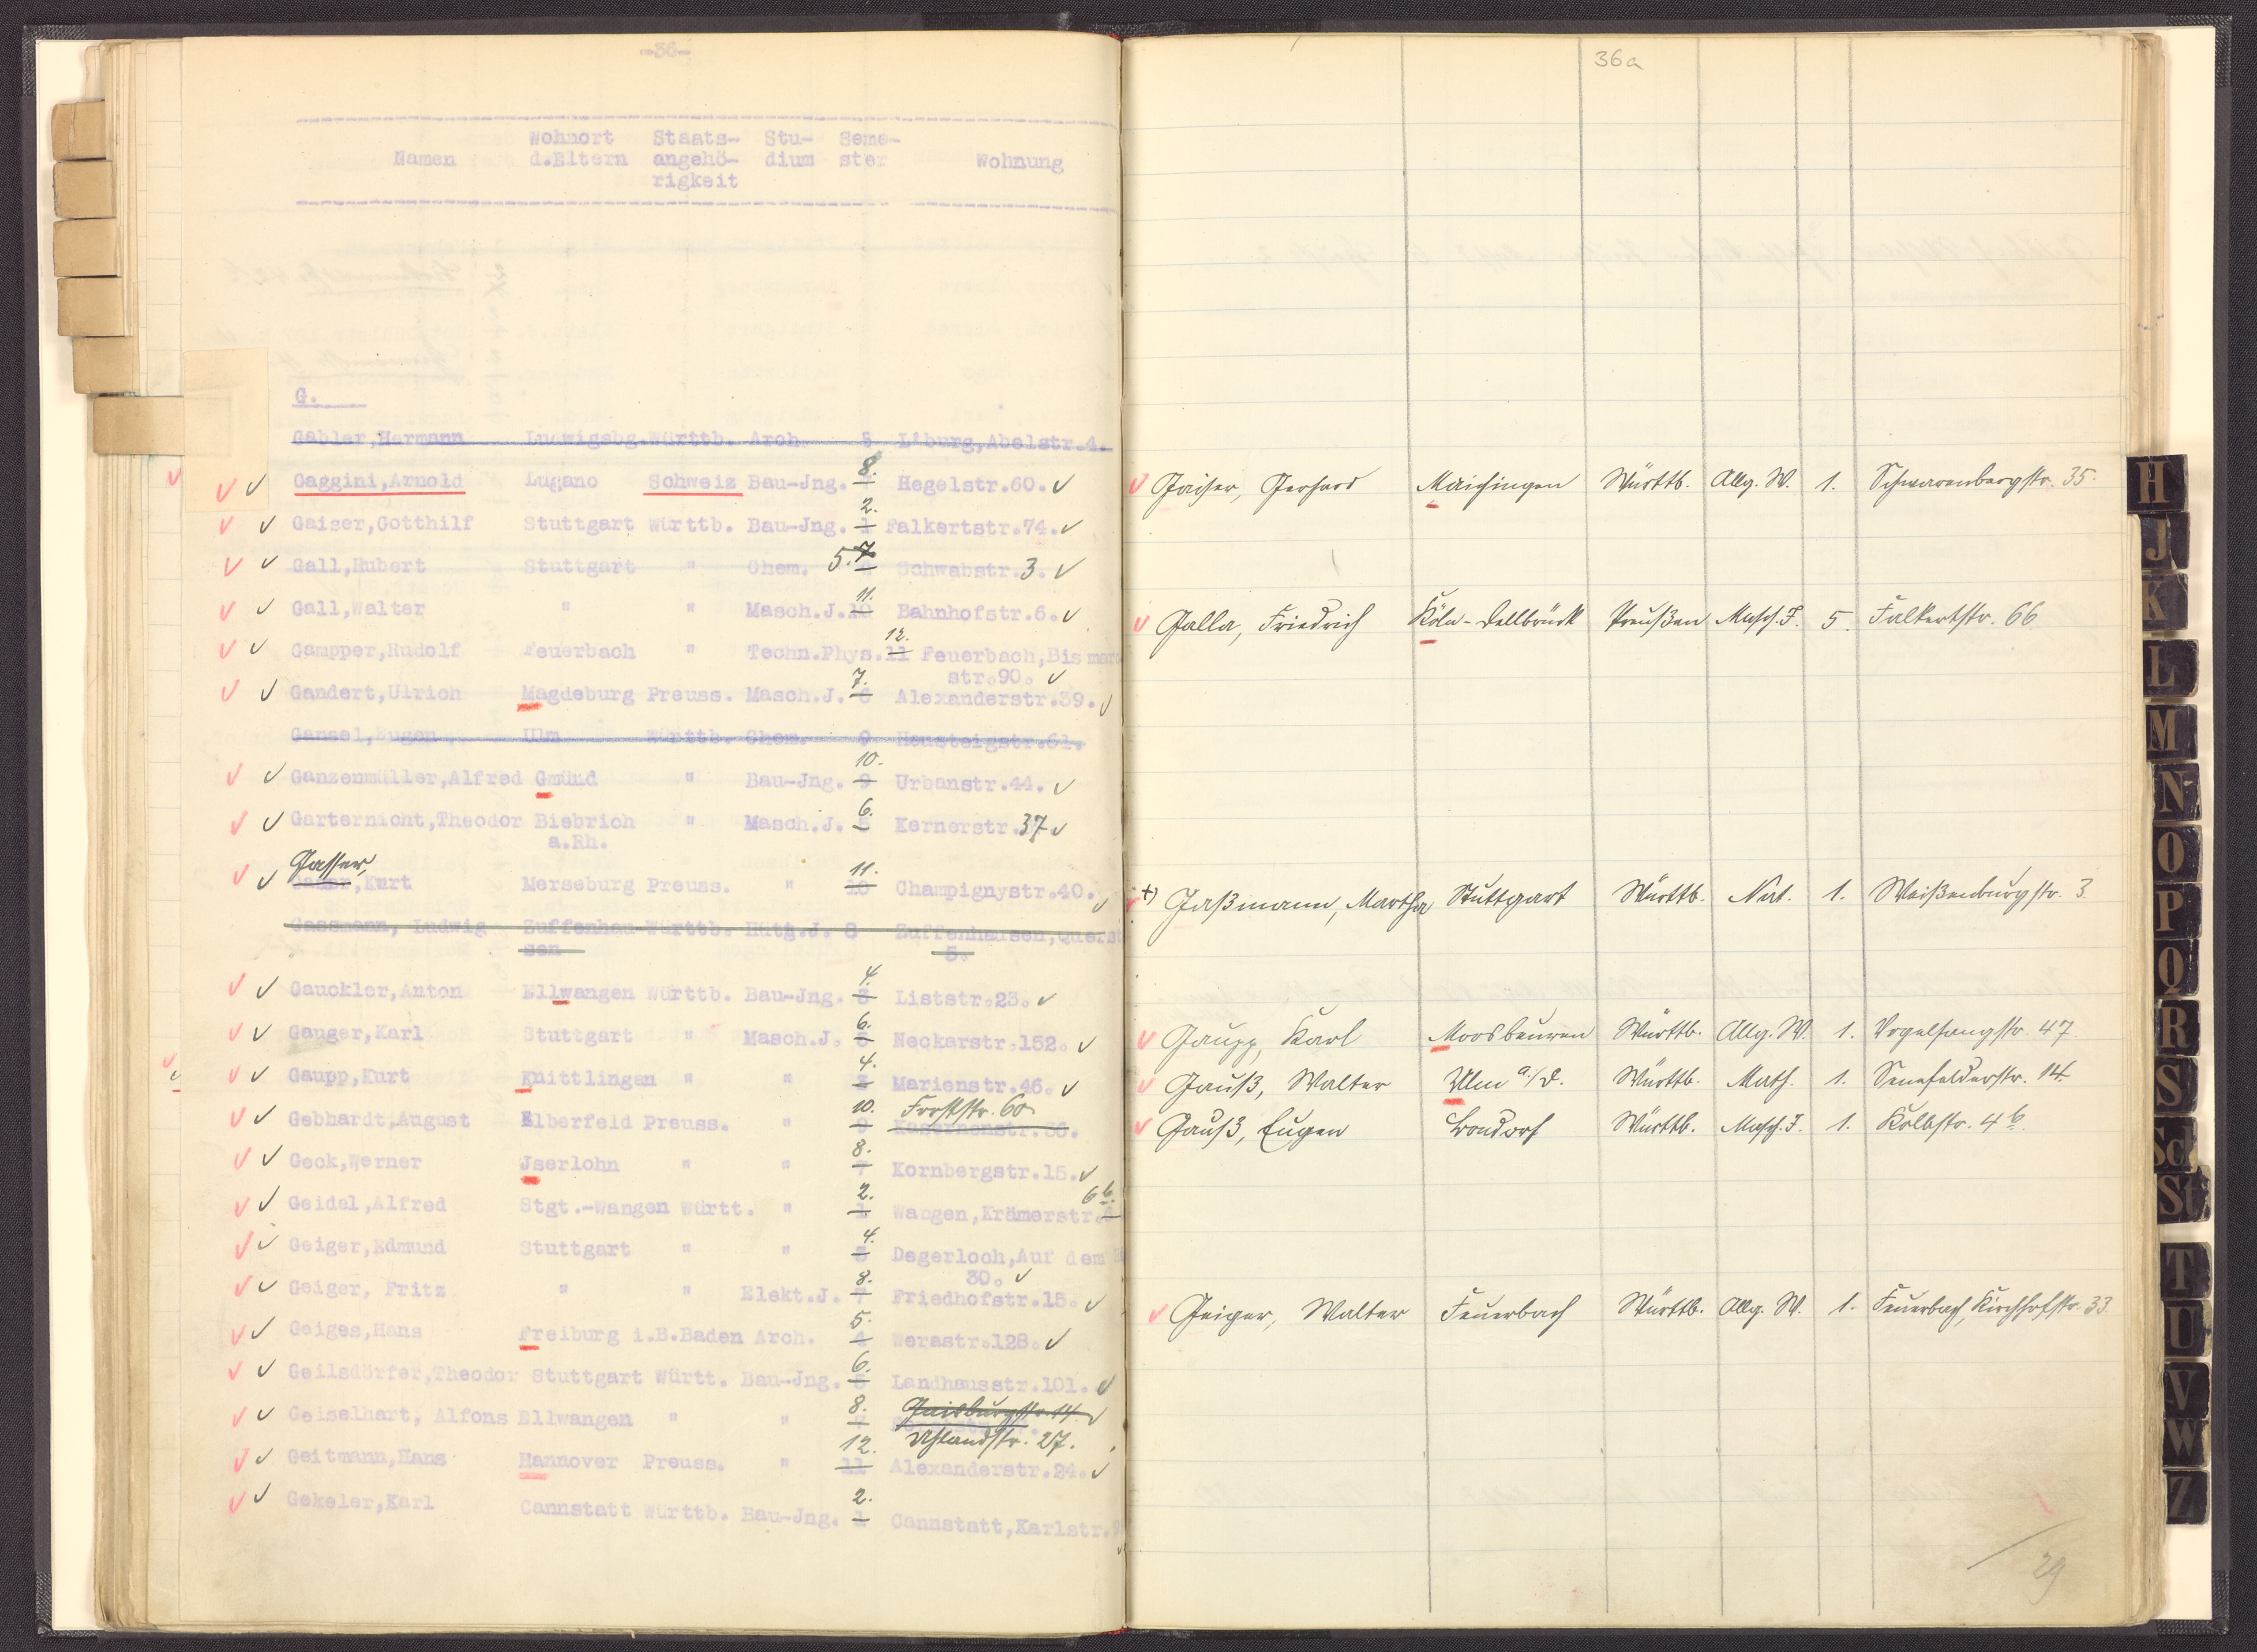 -36-
Wohnort Staats- Stu- Seme-
Namen d.Eltern angehö- dium ster Wohnung
rigkeit
G.
Gabler,Hermann Ludwigsbg.Württb. Arch. 8 L'burg,Abelstr.4.
Gaggini,Arnold Lugano Schweiz Bau-Jng. 8. Hegelstr.60.
Gaiser,Gotthilf Stuttgart Württb. Bau-Jng. 1 2. Falkertstr.74.
Gall,Hubert Stuttgart " Chem. 5. 7. 4 Schwabstr.3.
Gall,Walter " " Masch.J. 10 11. Bahnhofstr.6.
Gampper,Rudolf Feuerbach " Techn.Phys. 11 12. Feuerbach,Bismarc
str.90.
Gandert,Ulrich Magdeburg Preuss. Masch.J. 6 7. Alexanderstr.39.
Gansel,Eugen Ulm Württb. Chem. 9 Heusteigstr.61.
Ganzenmüller,Alfred Gmünd " Bau-Jng. 9 10. Urbanstr.44.
Garternicht,Theodor Biebrich " Masch.J. 5 6. Kernerstr.37
a.Rh.
Gasser,
,Kurt Merseburg Preuss. " 10 11. Champignystr.40.
Gassmann, Ludwig Zuffenhau-Württb. Hütt.J. 8 Zuffenhausen,Querst
sen 5.
Gauckler,Anton Ellwangen Württb. Bau-Jng. 3 4. Liststr.23.
Gauger,Karl Stuttgart " Masch.J. 5 6. Neckarstr.152.
Gaupp,Kurt Knittlingen " " 3 4. Marienstr.46.
Gebhardt,August Elberfeld Preuss. " 9 10. Forststr. 60. Kasernenstr.36.
Geck,Werner Jserlohn " " 7 8. Kornbergstr.15.
Geidel,Alfred Stgt.-Wangen Württ. " 1 2. Wangen,Krämerstr. 6b.
Geiger,Edmund Stuttgart " " 3 4. Degerloch,Auf dem
30.
Geiger, Fritz " " Elekt.J. 7 8. Friedhofstr.15.
Geiges,Hans Freiburg i.B.Baden Arch. 4 5. Werastr.128.
Geilsdörfer,Theodor Stuttgart Württ. Bau-Jng. 5 6. Landhausstr.101.
Geiselhart, Alfons Ellwangen " " 7 8. Gaisburgstr. 14.
Uhlandstr. 27.
Geitmann,Hans Hannover Preuss. " 11 12. Alexanderstr.24.
Gekeler,Karl Cannstatt Württb. Bau-Jng. 1 2. Cannstatt,Karlstr.9
36a
Gaiser, Gerhard Maichingen Württb. Allg. W. 1. Schwarenbergstr. 35.
Galla, Friedrich Köln-Dellbrück Preußen Masch. J. 5. Falkertstr. 66
+) Gaßmann, Martha Stuttgart Württb. Nat. 1. Weißenburgstr. 3
Gaupp, Karl Moosbeuren Württb. Allg. W. 1. Vogelsangstr. 47
Gauß, Walter Ulm a./D. Württb. Math. 1. Senefelderstr. 14.
Gauß, Eugen Bondorf Württb. Masch. J. 1. Kolbstr. 4b.
Geiger, Walter Feuerbach Württb. Allg. W. 1. Feuerbach, Kirchhofstr. 33.
29
H
J
K
L
M
N
O
P
Q
R
S
Sch
St
T
U
V
W
Z